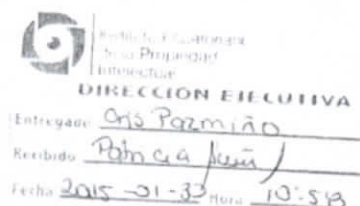 de la Propiedad
Intelectual
DIRECCIÓN EJECUTIVA
Entregado Cris Pazmiño
Recibido Patricia
Fecha 2015-01-
Hora 10:58